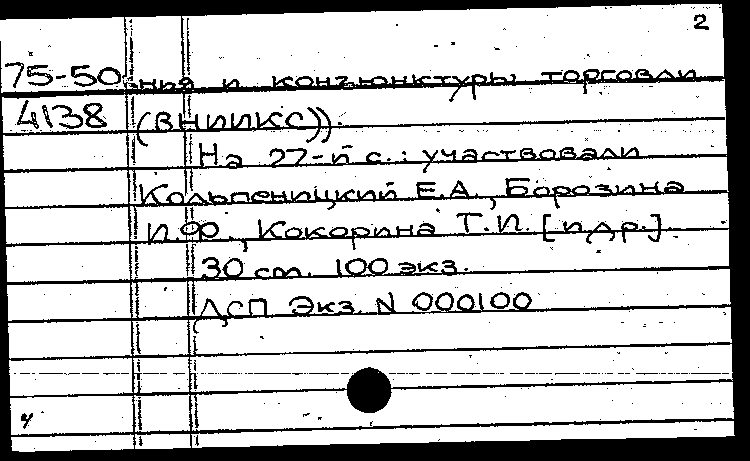 2
75-50 ния и конъюнктуры торговли
4138 (ВНИИКС)).
На 27-й с.: участвовали
Кольпеницкий Е.А., Борозина
И.Ф., Кокорина Т.И. [и др.].
30 см. 100 экз.
ДСП Экз. N 000100